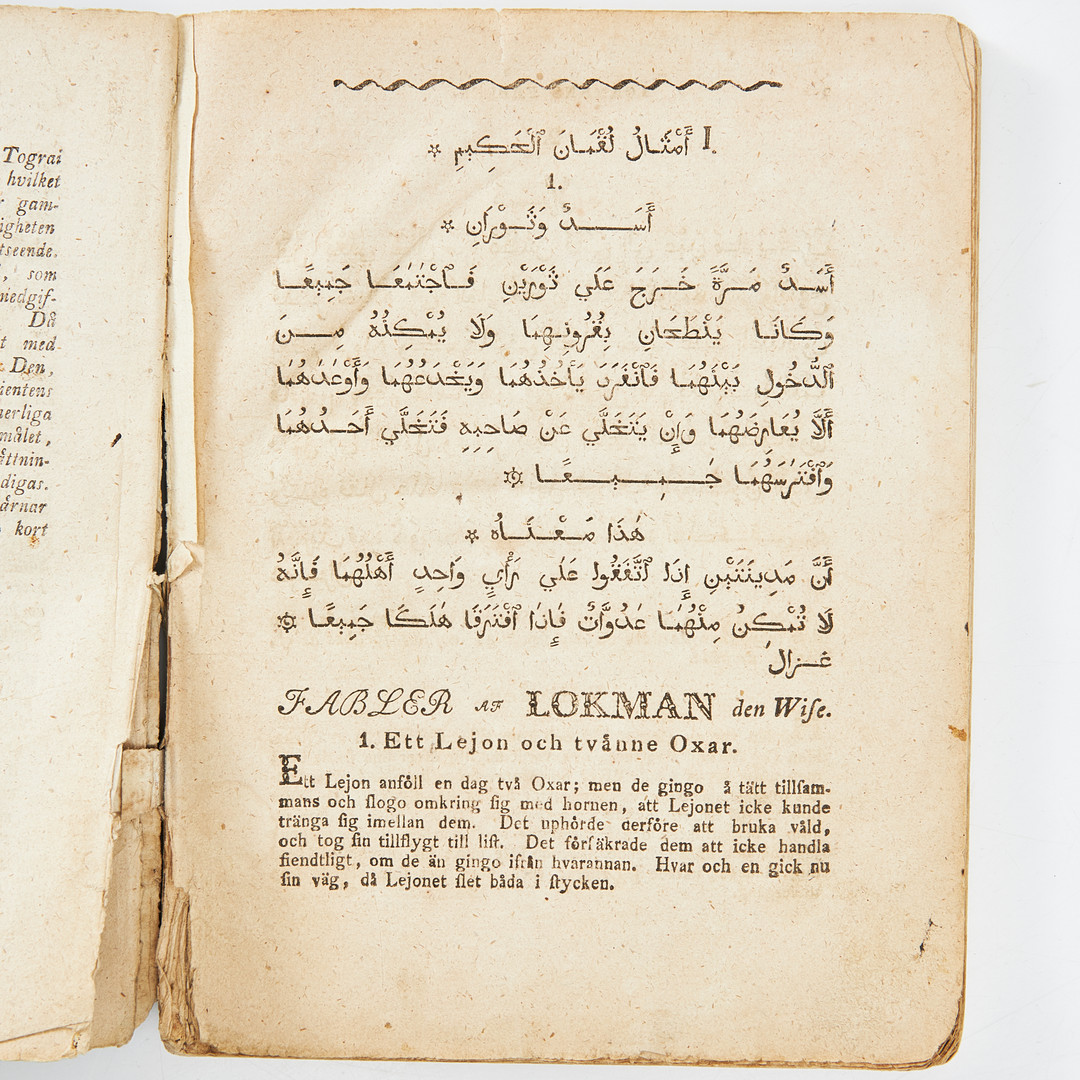 Tograi
hvilket
gam-
igheten
tseende.
, som
medgif-
Då
t med-
Den,
ientens
nerliga
målet,
åttnin-
digas.
årnar
kort
I. أَمْثَالُ لُقْمَانَ ٱلْحَكِيمِ *
1.
أَسَدٌ وَثَوْرَانِ *
أَسَدٌ مَرَّةً خَرَجَ عَلَي ثَوْرَيْنِ فَٱجْتَمَعَا جَمِيعًا
وَكَانَا يَنْطَحَانِ بِقُرُونِهِمَا وَلَا يُمْكِنُهُ مِنَ
ٱلدُّخُولِ بَيْنَهُمَا فَٱنْفَرَدَ يَأْخُذُهُمَا وَيَخْدَعُهُمَا وَأَوْعَدَهُمَا
أَلَّا يُعَارِضَهُمَا وَإِنْ يَتَخَلَّي عَنْ صَاحِبِهِ فَتَخَلَّي أَحَدُهُمَا
وَٱفْتَرَسَهُمَا جَمِيعًا
هٰذَا مَعْنَاهُ *
أَنَّ مَدِينَتَيْنِ إِذَا ٱتَّفَقُوا عَلَي رَأْيٍ وَاحِدٍ أَهْلُهُمَا فَإِنَّهُ
لَا تُمْكِنُ مِنْهُمَا عَدُوَّاتٌ فَإِذَا ٱفْتَرَقَا هَلَكَا جَمِيعًا
غزال
FABLER AF LOKMAN den Wiſe.
1. Ett Lejon och tvånne Oxar.
Ett Lejon anföll en dag två Oxar; men de gingo å tätt tillſam-
mans och ſlogo omkring ſig med hornen, att Lejonet icke kunde
tränga ſig imellan dem. Det uphörde derföre att bruka våld,
och tog ſin tillflygt till liſt. Det förſäkrade dem att icke handla
fiendtligt, om de än gingo ifrån hvarannan. Hvar och en gick nu
ſin väg, då Lejonet ſlet båda i ſtycken.